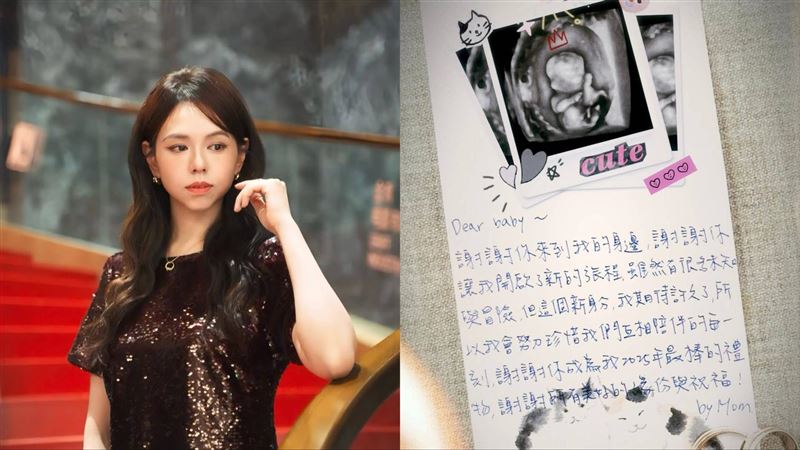 cute
Dear baby ~
謝謝你來到我的身邊,謝謝你
讓我開啟了新的旅程,雖然有很多未知
與冒險,但這個新身分,我期待許久了,所
以我會努力珍惜我們互相陪伴的每一
刻,謝謝你成為我2025年最棒的禮
物,謝謝所有美好的 份與祝福!
by Mom